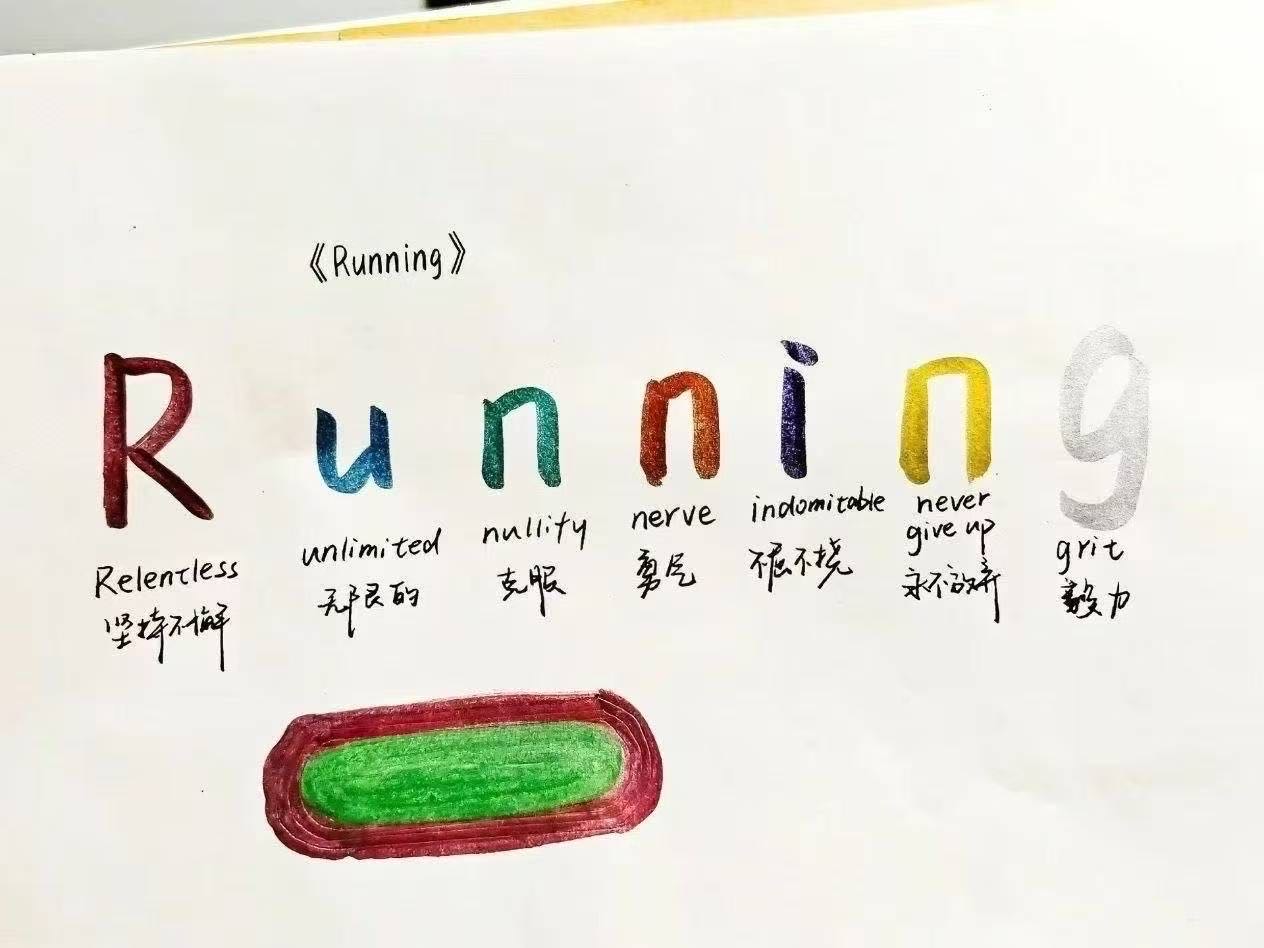 《Running》
Running
Relentless
坚持不懈
unlimited
无限的
nullify
克服
nerve
勇气
indomitable
不屈不挠
never
give up
永不放弃
grit
毅力